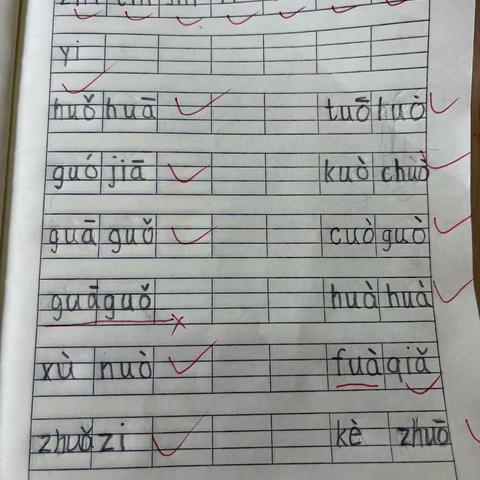 yi
huǒ huā tuō luò
guó jiā kuò chuò
guā guǒ cuò guò
guā guǒ huà huà
xù nuò fuà qiǎ
zhuǎ zi kè zhuō